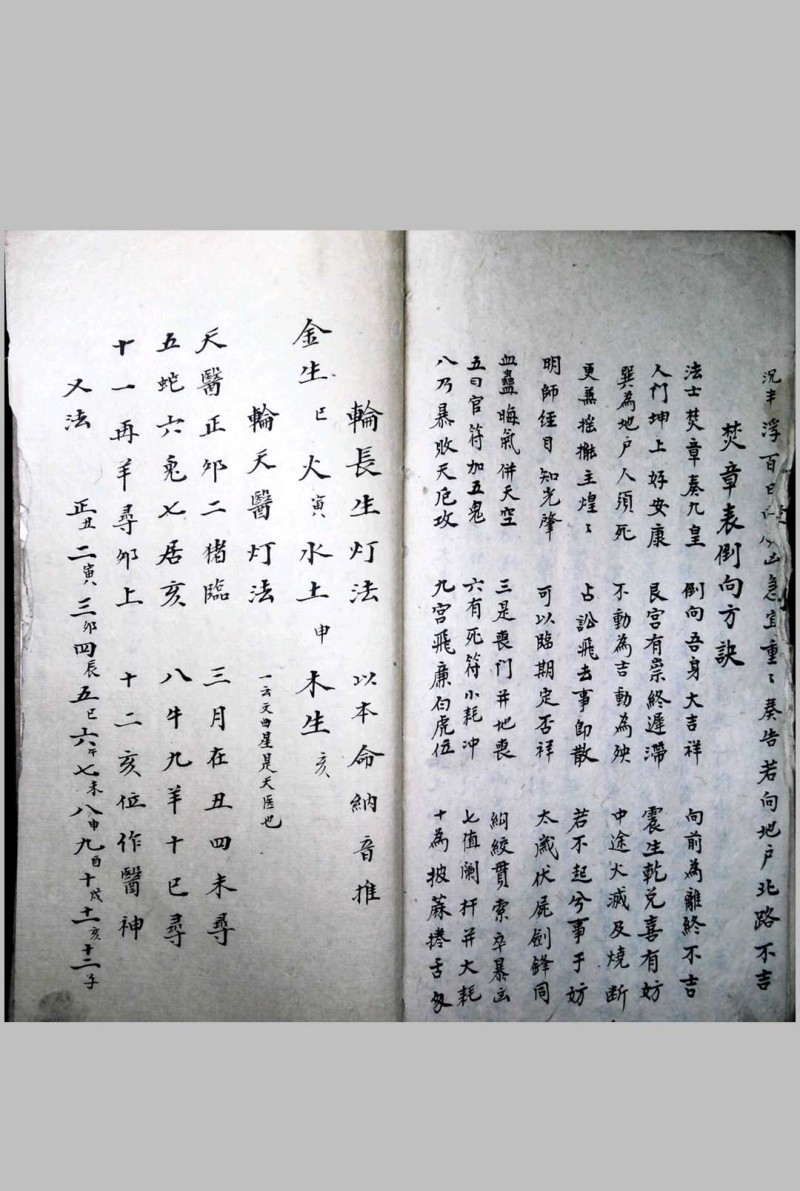 浮百日 急宜重〻奏告若向地户北路不吉
焚章表倒向方訣
法士焚章奏九皇 倒向吾身大吉祥 向前為離終不吉
人門坤上好安康 艮宮有祟終遲滯 震生乾兌喜有妨
巽為地户人須死 不動為吉動為殃 中途火滅及燒斷
更兼搖擺主煌〻 占訟飛去事即散 若不起兮事于妨
明師經目知光肇 可以臨期定否祥 太歲伏屍劍鋒同
血蠱晦氣併天空 三是喪門并地喪 絞貫索卒暴凶
五曰官符加五鬼 六有死符小耗冲 七值闌扞并大耗
八乃暴敗天厄攻 九宮飛廉白虎位 十為披蔴捲舌
輪長生灯法 以本命納音推
金生巳火寅水土申木生亥
輪天醫灯法 一云文曲星是天医也
天醫正夘二猪臨 三月在丑四未尋
五蛇六兔七居亥 八牛九羊十巳尋
十一再羊尋夘上 十二亥位作醫神
又法 正丑二寅三夘四辰五巳六午七未八申九酉十戌十一亥十二子